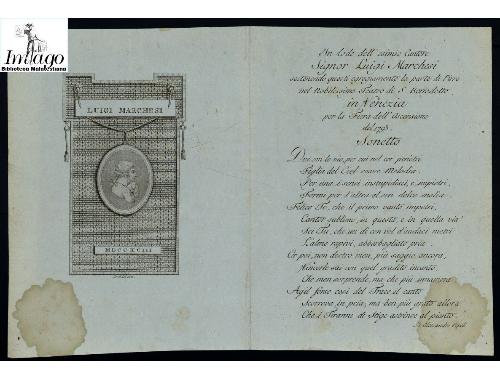 Imago
Biblioteca Malatestiana
LUIGI MARCHESI
MDCCXCIII
In Lode dell' esimio Cantore
Signor Luigi Marchesi
sostenendo questi egregiamente la parte di Piro
nel Nobilissimo Teatro di S. Benedetto
in Venezia
per la Fiera dell' Ascensione
del 1793.
Sonetto
Due son le vie, per cui nel cor penetri
Figlia del Ciel soave Melodia,
Per una i sensi instupidisci, e impietri,
Scorri per l'altra al sen dolce malia.
Felice Tu, che il primo vanto impetri,
Cantor sublime, in questa, e in quella via
Sei Tu, che un dì con vol d'audaci metri
L'alme rapivi, abbarbagliate pria.
Or poi, non destro men, più saggio ancora,
Che men sorprende, ma che più innamora
Agil forse così del Trace il canto
Scorreva in pria, ma ben più grato allora
Che i Tiranni di Stige astrinse al pianto.
Di Alessandro Pepoli